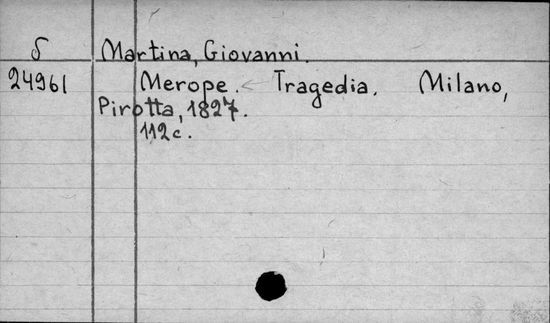 δ Martina, Giovanni.
24961 Merope. Tragedia. Milano,
Pirotta, 1827.
112c.